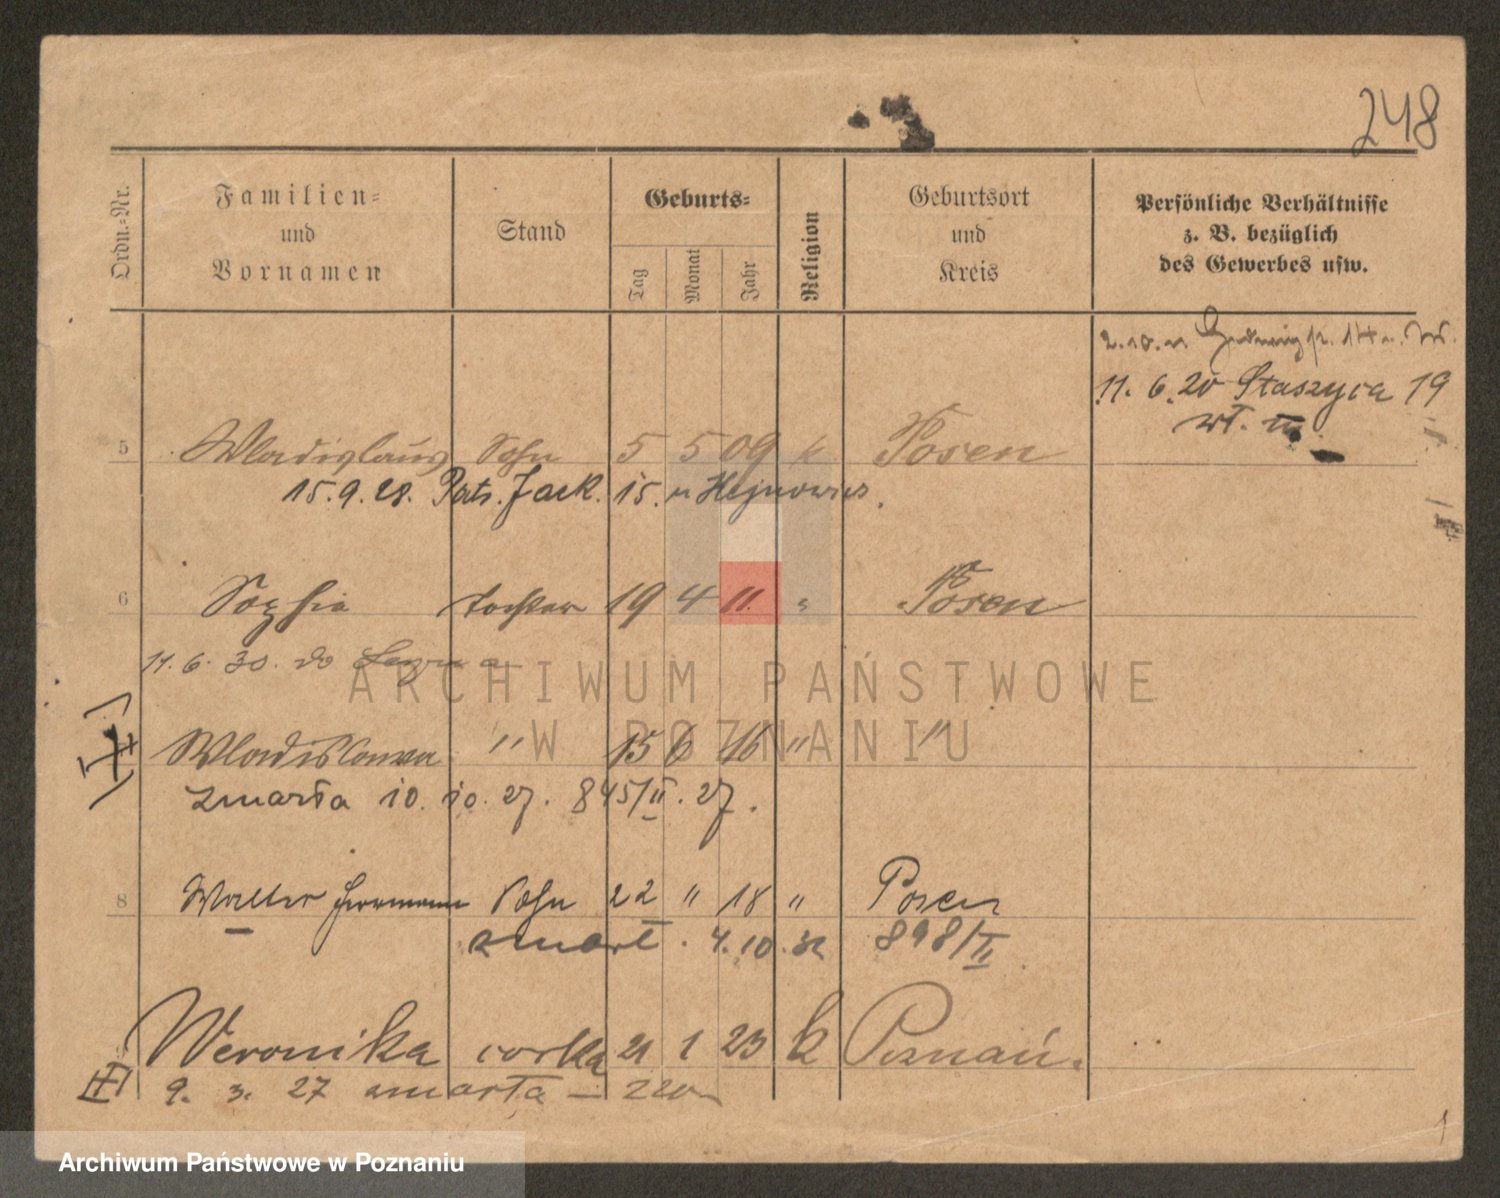 248
Ordn.=Nr.
Familien=
und
Vornamen
Stand
Geburts=
Tag
Monat
Jahr
Religion
Geburtsort
und
Kreis
Persönliche Verhältnisse
z. B. bezüglich
des Gewerbes usw.
2.10.
11. 6. 20 Staszyca 19
wł.
5 Wladislaus Sohn 5 5 09 k Posen
15. 9. 28. Jack. 15.
6 Sophia tochter 19 4 11. " Posen
11. 6. 30. do
Wladislawa " 15 6 16 " "
zmarła 10. 10. 27. 845/II. 27.
8 Walter Hermann Sohn 22 " 18 " Posen
zmarł. 4. 10. 898/II
Weronika corka 21 1 23 k Poznań.
9. 3. 27 zmarła —
ARCHIWUM PAŃSTWOWE
W POZNANIU
Archiwum Państwowe w Poznaniu